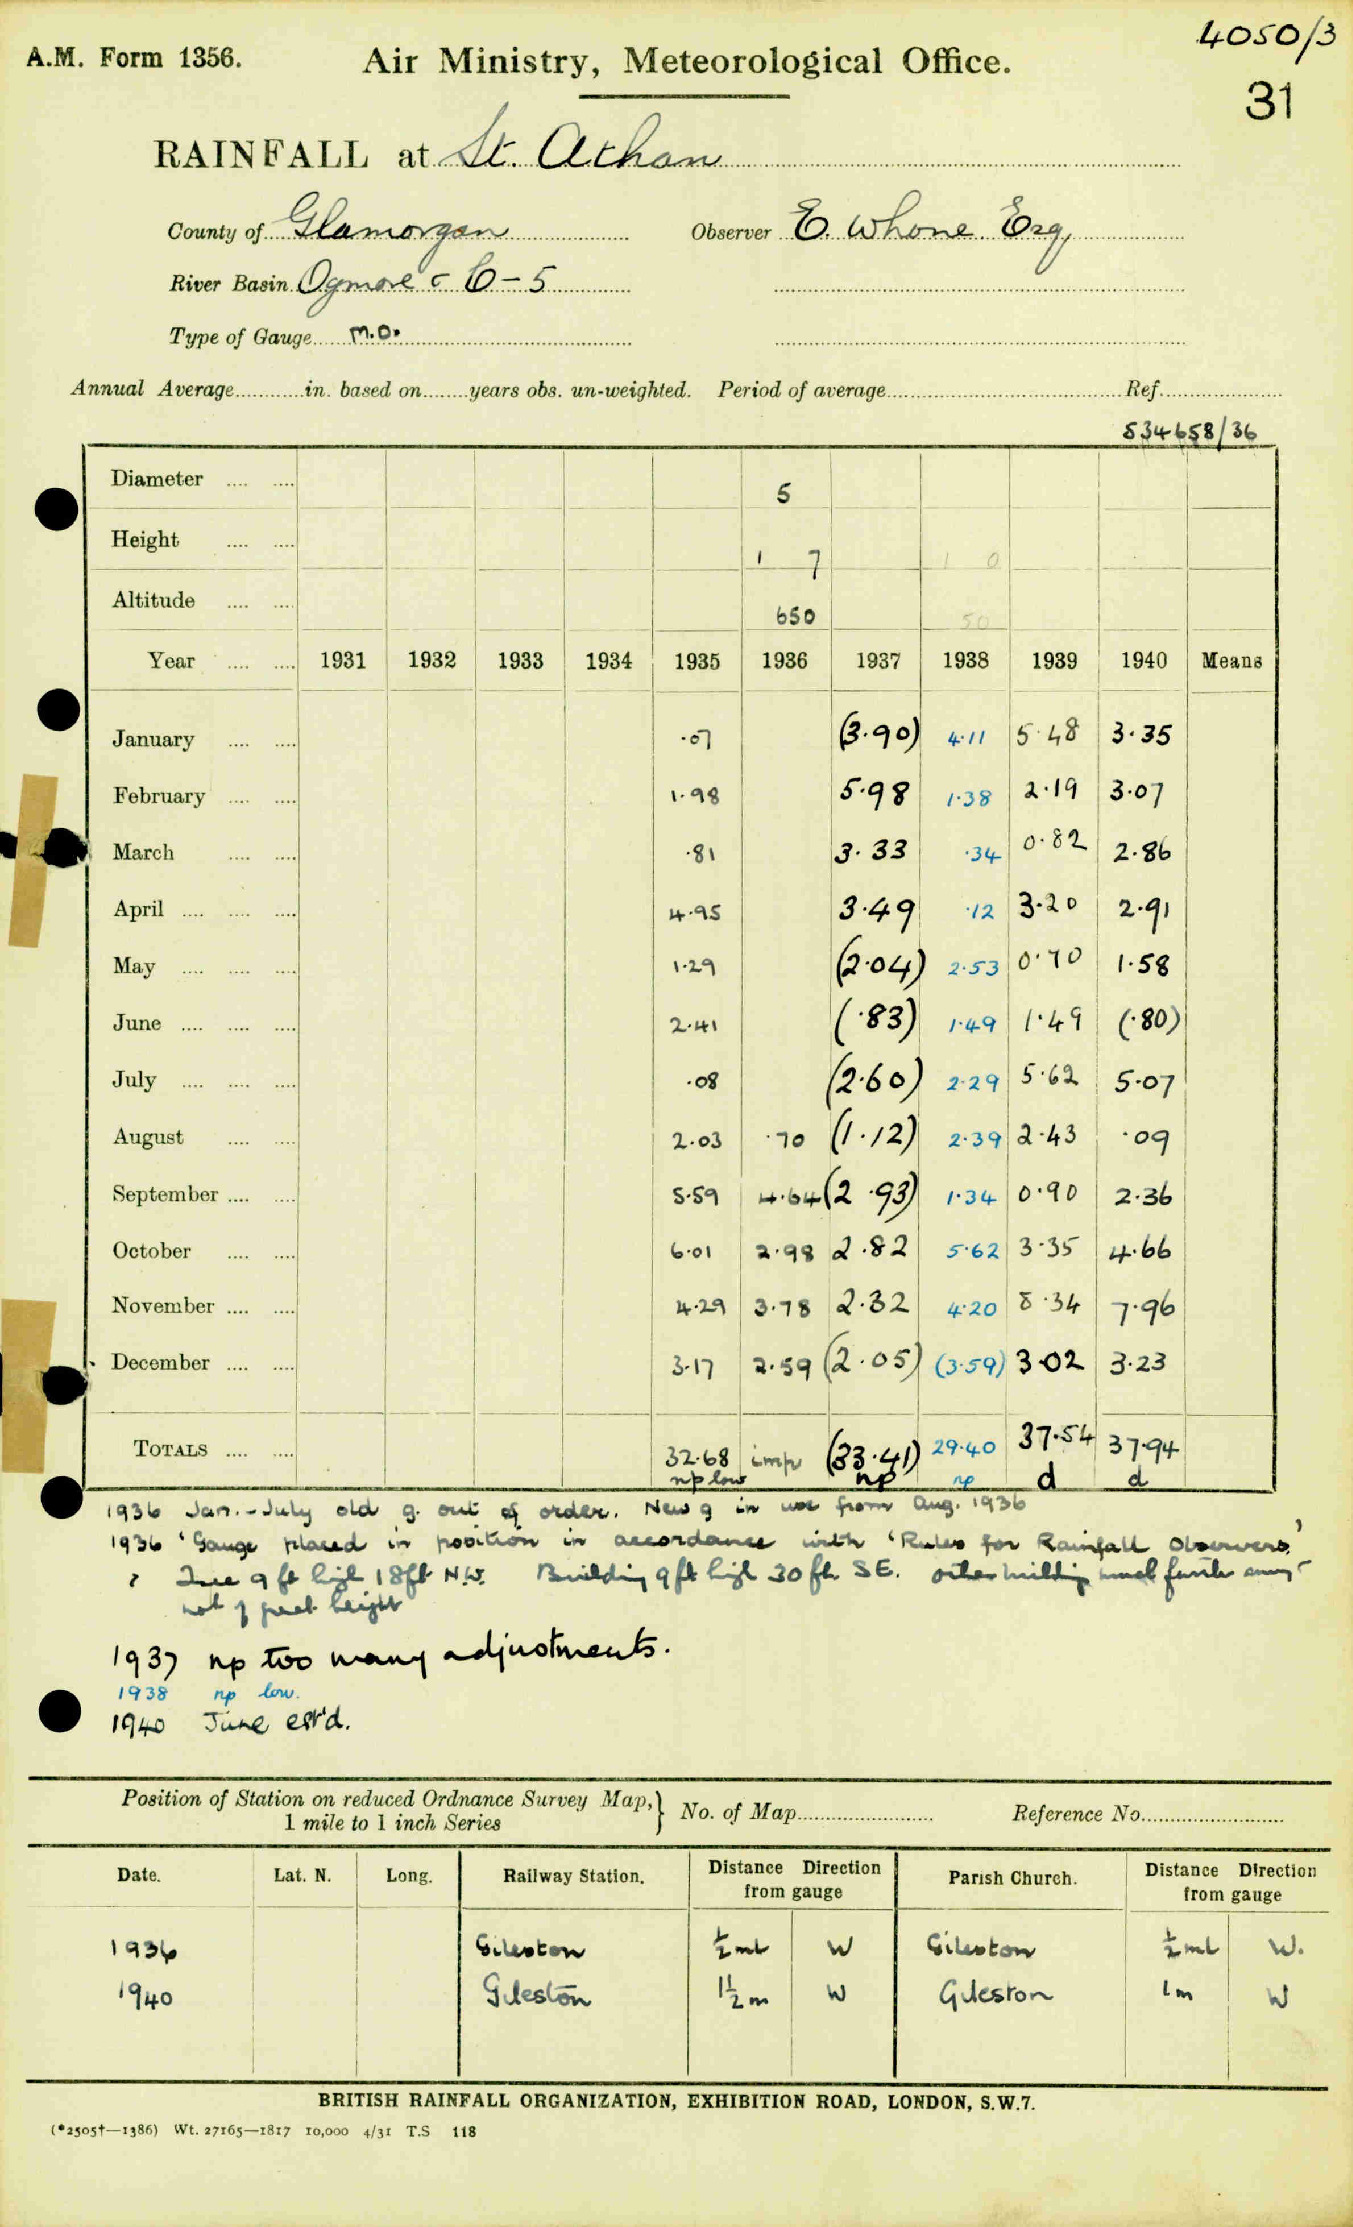 4050/3
A.M. Form 1356. Air Ministry, Meteorological Office.
31
RAINFALL at St. Athan
County of Glamorgan Observer E. Whone Esq,
River Basin Ogmore C-5
Type of Gauge M.O.
Annual Average in. based on years obs. un-weighted. Period of average Ref.
534658/36
Diameter 5
Height 1 7 1 0
Altitude 650 50
Year 1931 1932 1933 1934 1935 1936 1937 1938 1939 1940 Means
January .07 (3.90) 4.11 5.48 3.35
February 1.98 5.98 1.38 2.19 3.07
March .81 3.33 .34 0.82 2.86
April 4.95 3.49 .12 3.20 2.91
May 1.29 (2.04) 2.53 0.70 1.58
June 2.41 (.83) 1.49 1.49 (.80)
July .08 (2.60) 2.29 5.62 5.07
August 2.03 .70 (1.12) 2.39 2.43 .09
September 5.59 4.64 (2.93) 1.34 0.90 2.36
October 6.01 2.98 2.82 5.62 3.35 4.66
November 4.29 3.78 2.32 4.20 8.34 7.96
December 3.17 2.59 (2.05) (3.59) 3.02 3.23
TOTALS 32.68 imp (33.41) 29.40 37.54 37.94
np low np np d d
1936 Jan.-July old g. out of order. New g in use from Aug. 1936
1936 'Gauge placed in position in accordance with 'Rules for Rainfall Observers'
Tree 9 ft high 18ft N.W. Building 9ft high 30 ft SE. other building much further away
not of great height
1937 np too many adjustments.
1938 np low.
1940 June est'd.
Position of Station on reduced Ordnance Survey Map, } No. of Map Reference No.
1 mile to 1 inch Series
Date. Lat. N. Long. Railway Station. Distance Direction from gauge Parish Church. Distance Direction from gauge
1936 Gileston ½ ml W Gileston ½ ml W.
1940 Gileston 1½ m W Gileston 1 m W
BRITISH RAINFALL ORGANIZATION, EXHIBITION ROAD, LONDON, S.W.7.
(*2505†—1386) Wt. 27165—1817 10,000 4/31 T.S 118